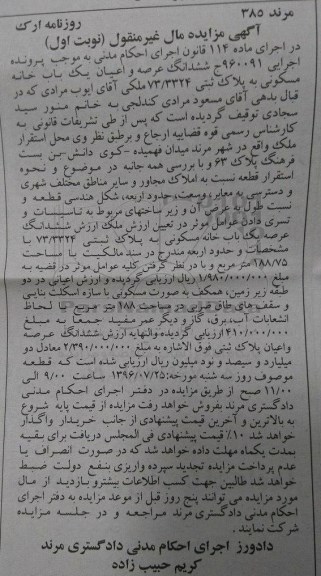 مرند ۳۸۵
روزنامه ارک
آگهی مزایده مال غیرمنقول (نوبت اول)
در اجرای ماده ۱۱۴ قانون اجرای احکام مدنی به موجب پرونده
اجرایی ۹۶۰۰۹۱ج ششدانگ عرصه و اعیان یک باب خانه
مسکونی به پلاک ثبتی ۷۳/۳۳۲۴ ملکی آقای ایوب مرادی که در
قبال بدهی آقای مسعود مرادی کندلجی به خانم منور سید
سجادی توقیف گردیده است که پس از طی تشریفات قانونی به
کارشناس رسمی قوه قضاییه ارجاع و برطبق نظر وی محل استقرار
ملک واقع در شهر مرند میدان فهمیده -کوی دانش-بن بست
فرهنگ پلاک ۶۳ و با بررسی همه جانبه در موضوع و نحوه
استقرار قطعه نسبت به املاک مجاور و سایر مناطق مختلف شهری
و دسترسی به معابر، وسعت، حدود اربعه، شکل هندسی قطعه و
نسبت طول به عرض آن و زیر ساختهای مربوط به تاسیسات و
تسری دادن عوامل موثر در تعیین ارزش ملک ارزش ششدانگ
عرصه یک باب خانه مسکونی به پلاک ثبتی ۷۳/۳۳۲۴ با
مشخصات و حدود اربعه مندرج در سند مالکیت با مساحت
۱۸۸/۷۵ متر مربع و با در نظر گرفتن کلیه عوامل موثر در قضیه به
مبلغ ۱/۹۸۰/۰۰۰/۰۰۰ ریال ارزیابی گردیده و ارزش اعیانی در دو
طبقه زیر زمین، همکف به صورت مسکونی با سازه اسکلت بنایی
و سقف های طاق ضربی در مساحت ۱۸۸ متر مربع با لحاظ
انشعابات آب، برق، گاز و دیگر عمر مفید جمعا به مبلغ
۴۱۰/۰۰۰/۰۰۰ ارزیابی گردیده والنهایه ارزش ششدانگ عرصه
واعیان پلاک ثبتی فوق الاشاره به مبلغ ۲/۳۹۰/۰۰۰/۰۰۰ معادل دو
میلیارد و سیصد و نود میلیون ریال ارزیابی شده است که قطعه
موصوف روز سه شنبه مورخه:۱۳۹۶/۰۷/۲۵ ساعت ۹/۰۰ الی
۱۱/۰۰ صبح از طریق مزایده در دفتر اجرای احکام مدنی
دادگستری مرند بفروش خواهد رفت مزایده از قیمت پایه شروع
به بالاترین و آخرین قیمت پیشنهادی از جانب خریدار واگذار
خواهد شد ۱۰٪ قیمت پیشنهادی فی المجلس دریافت برای بقیه
بمدت یکماه مهلت داده خواهد شد که در صورت انصراف یا
عدم پرداخت مزایده تجدید سپرده واریزی بنفع دولت ضبط
خواهد شد طالبین جهت کسب اطلاعات بیشترو بازدید از مال
مورد مزایده می توانند پنج روز قبل از موعد مزایده به دفتر اجرای
احکام مدنی دادگستری مرند مراجعه و در جلسه مزایده
شرکت نمایند.
دادورز اجرای احکام مدنی دادگستری مرند
کریم حبیب زاده